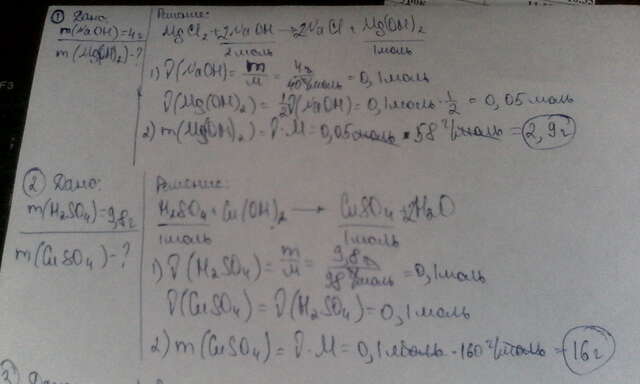 ① Дано:
m(NaOH)=4г
m(Mg(OH)₂)-?
Решение:
MgCl₂ + 2NaOH → 2NaCl + Mg(OH)₂
2моль 1моль
1) ν(NaOH) = m/M = 4г/40г/моль = 0,1моль
ν(Mg(OH)₂) = 1/2ν(NaOH) = 0,1моль·1/2 = 0,05моль
2) m(Mg(OH)₂) = ν·M = 0,05моль · 58г/моль = 2,9г
② Дано:
m(H₂SO₄)=9,8г
m(CuSO₄)-?
Решение:
H₂SO₄ + Cu(OH)₂ → CuSO₄ + 2H₂O
1моль 1моль
1) ν(H₂SO₄) = m/M = 9,8г/98г/моль = 0,1моль
ν(CuSO₄) = ν(H₂SO₄) = 0,1моль
2) m(CuSO₄) = ν·M = 0,1моль·160г/моль = 16г